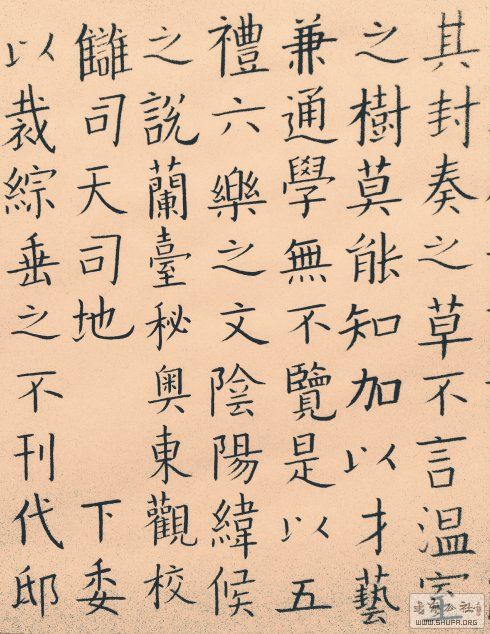 其封奏之草不言温室
之樹莫能知加以才藝
兼通學無不覽是以五
禮六樂之文陰陽緯候
之說蘭臺秘奥東觀校
讎司天司地 下委
以裁綜垂之不刊代邸
WWW.SHUFA.ORG